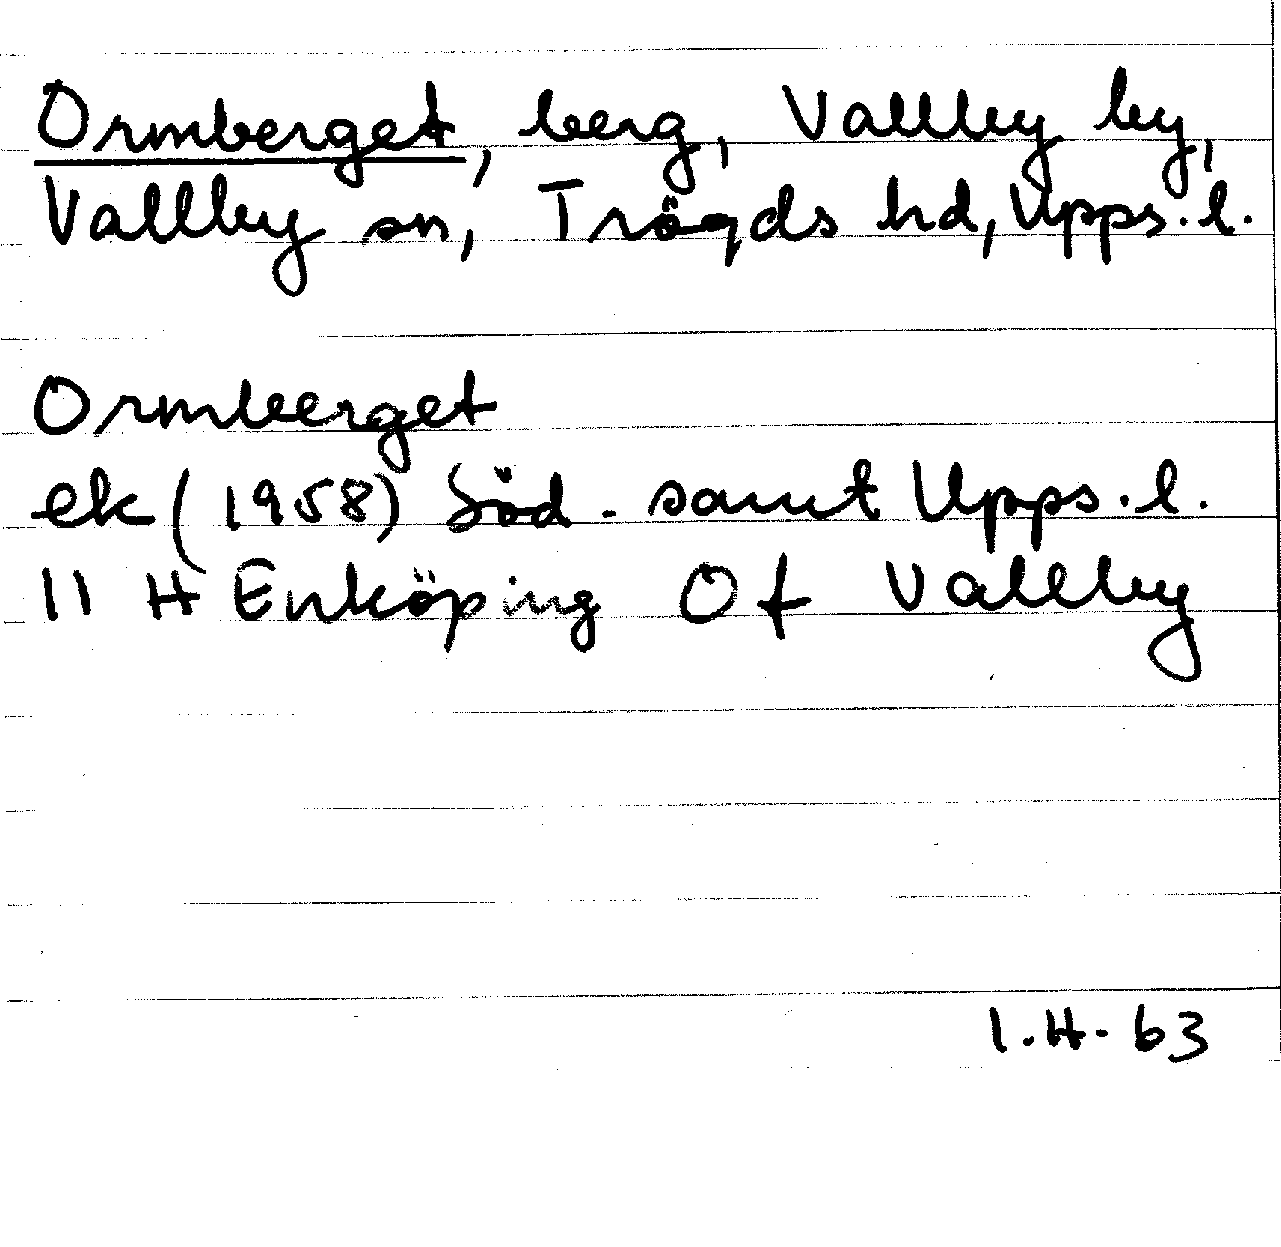 Ormberget, berg, Vallby by,
Vallby sn, Trögds hd, Upps. l.
Ormberget
ek (1958) Söd. samt Upps. l.
11 H Enköping Of Vallby
I. H. 63